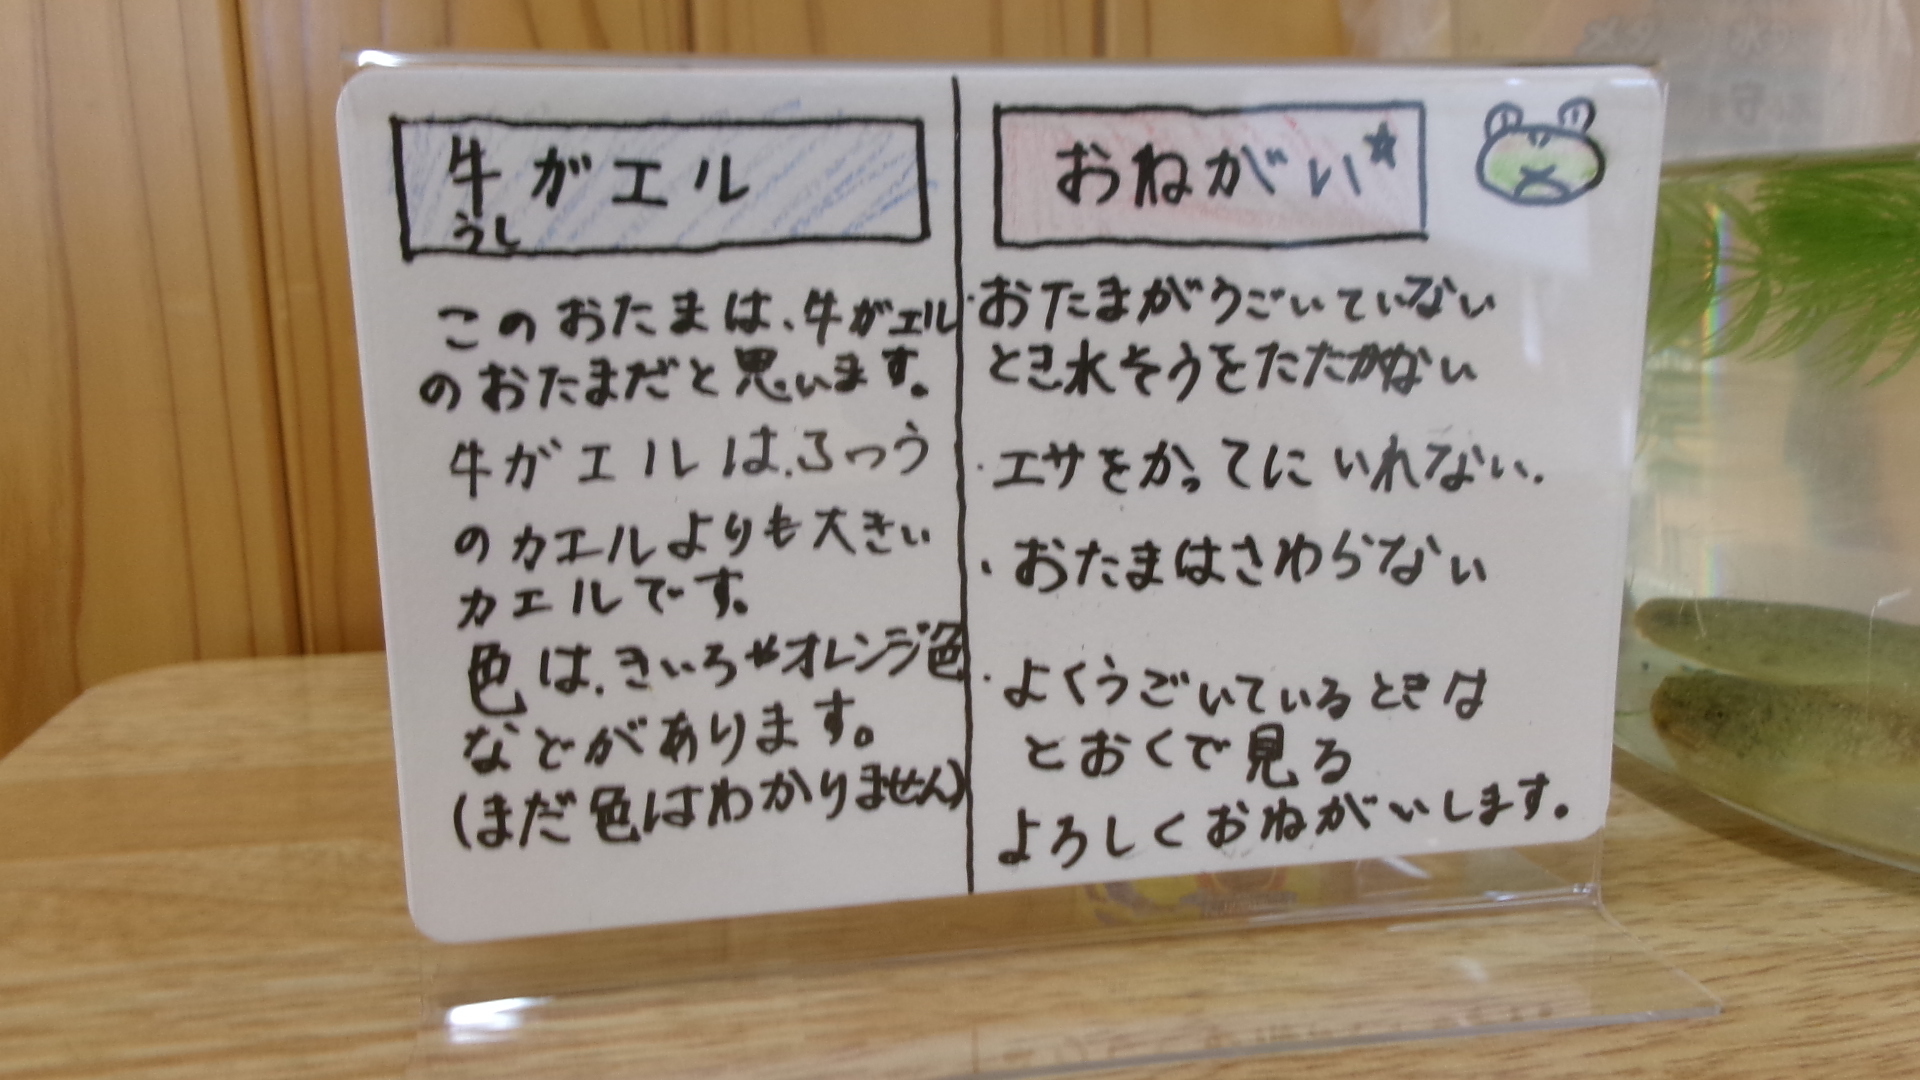 牛がエル
うし
このおたまは、牛がエル
のおたまだと思います。
牛がエルは、ふつう
のカエルよりも大きい
カエルです。
色は、きいろやオレンジ色
などがあります。
(まだ色はわかりません)
おねがい★
・おたまがうごいていない
とき水そうをたたかない
・エサをかってにいれない.
・おたまはさわらない
・よくうごいているときは
とおくで見る
よろしくおねがいします。